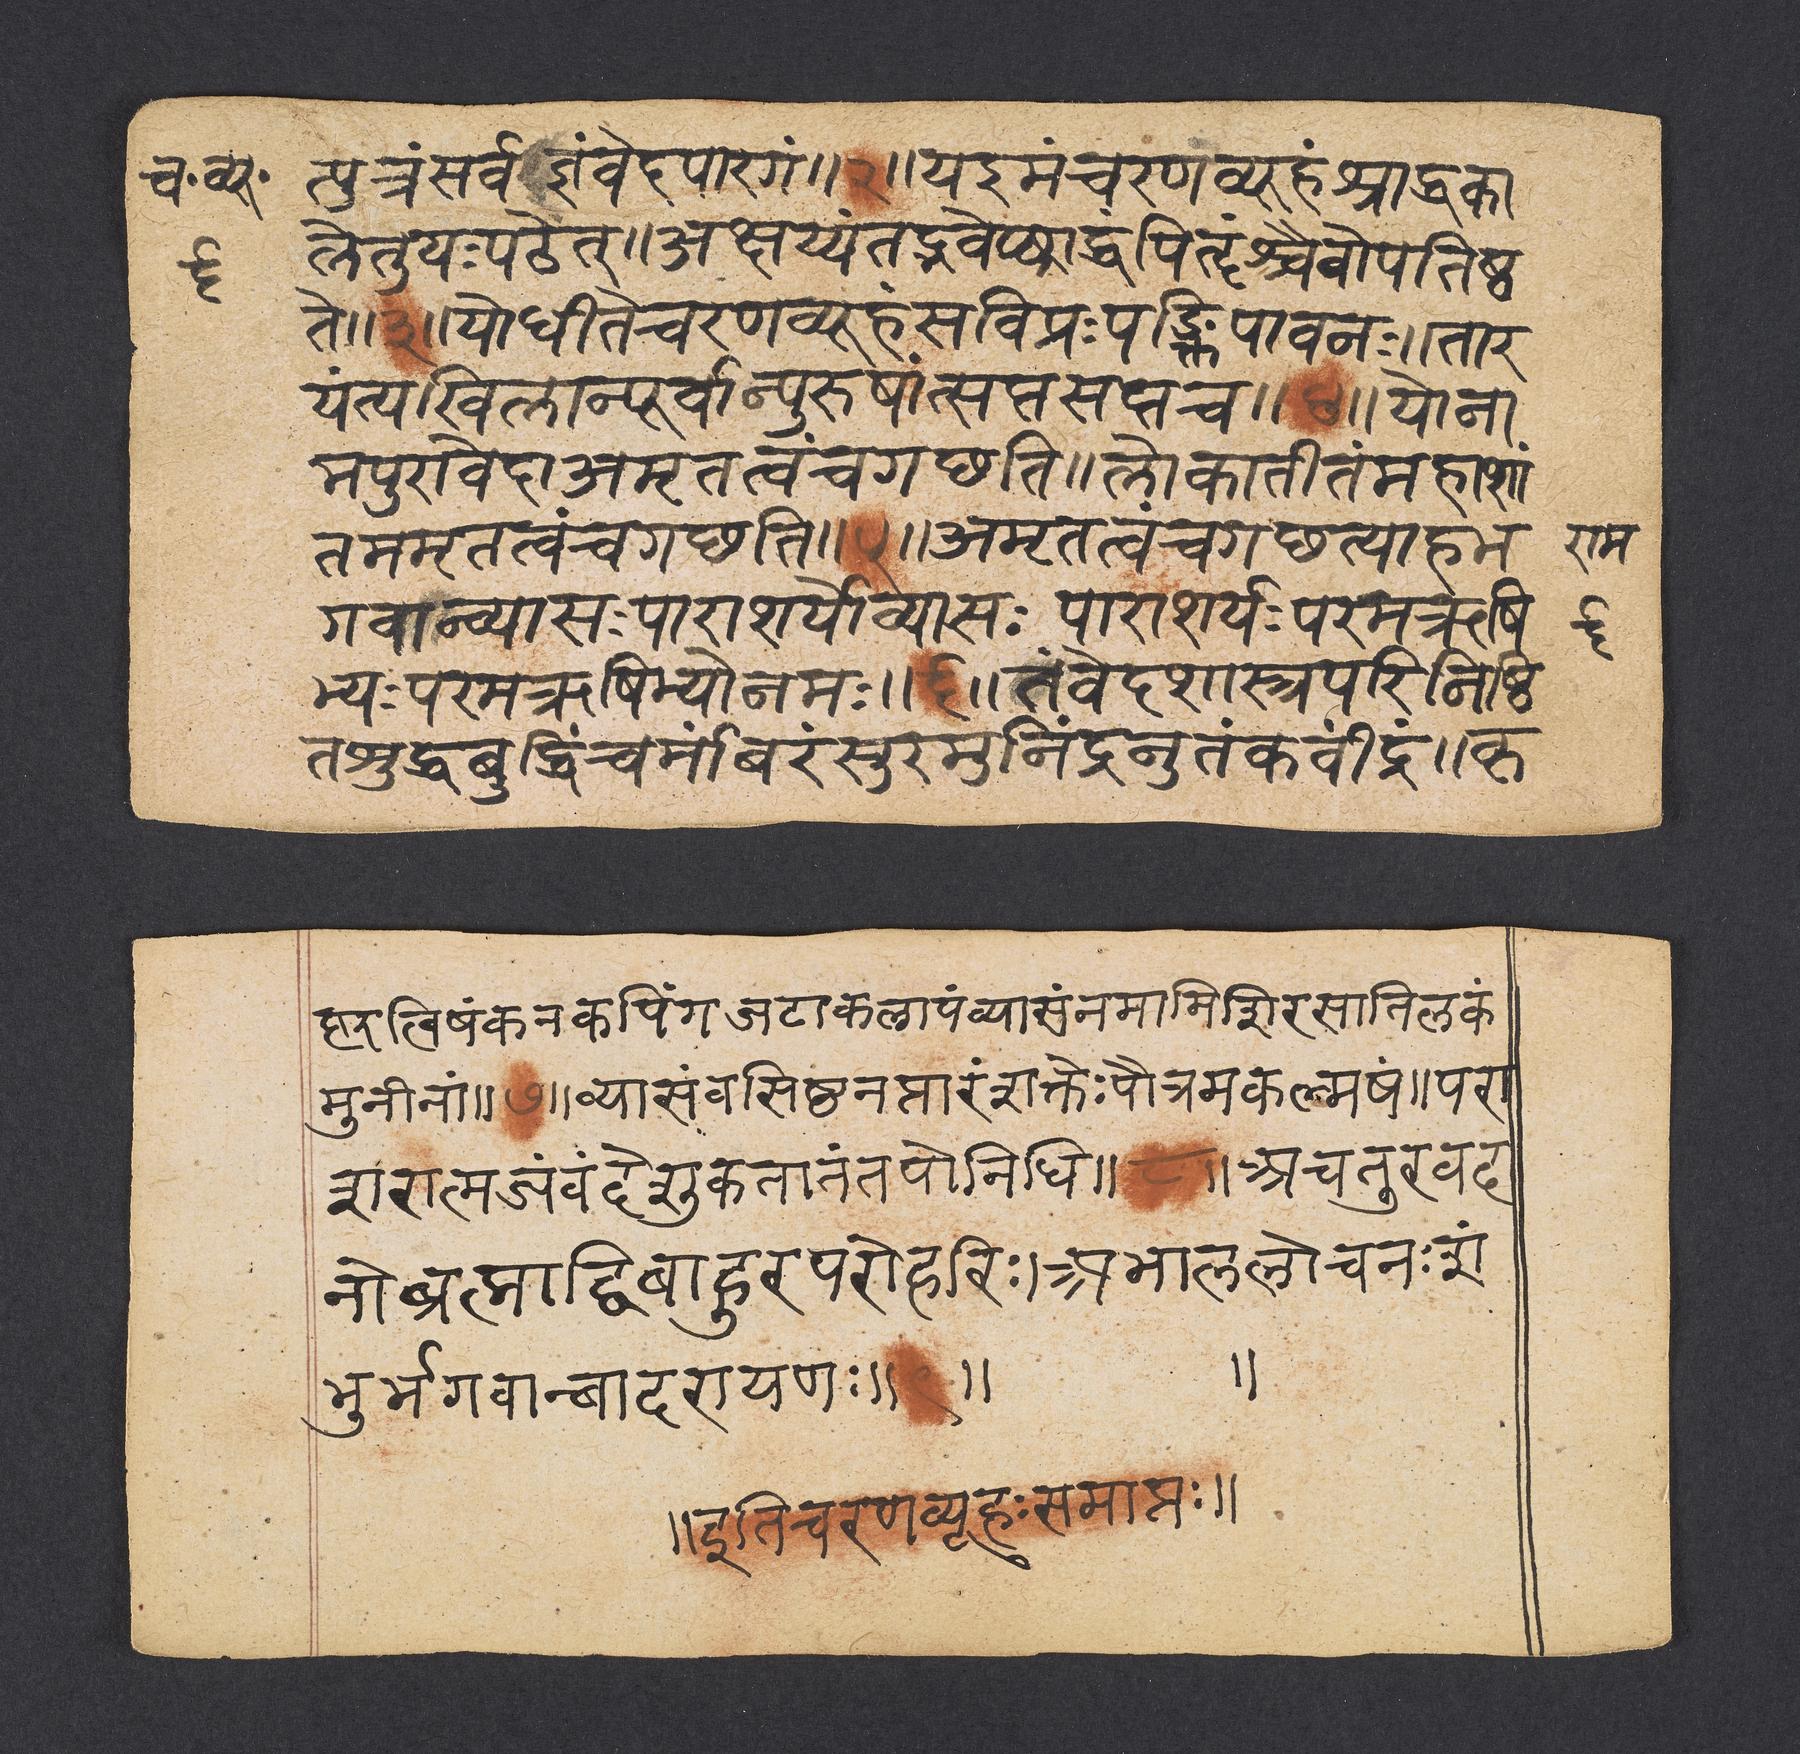 च॰ व्यू॰
६
त्पुत्रंसर्वज्ञंवेदपारगं॥२॥यइमंचरणव्यूहंश्राद्धका
लेतुयःपठेत्॥अक्षय्यंतद्भवेच्छ्राद्धंपितॄंश्चैवोपतिष्ठ
ते॥३॥योधीतेचरणव्यूहंसविप्रःपङ्क्तिपावनः॥तार
यंत्यखिलान्पूर्वान्पुरुषांत्सप्तसप्तच॥४॥योना
मपुरावेदाअमृतत्वंचगछति॥लोकातीतंमहाशां
तममृतत्वंचगछति॥५॥अमृतत्वंचगछत्याहभ
राम
गवान्व्यासःपाराशर्योव्यासः पाराशर्यःपरमऋषि
६
भ्यःपरमऋषिभ्योनमः॥६॥तंवेदशास्त्रपरिनिष्ठि
तशुद्धबुद्धिंचर्मांबरंसुरमुनिंद्रनुतंकवींद्रं॥कृ
ष्णत्विषंकनकपिंगजटाकलापंव्यासंनमामिशिरसातिलकं
मुनीनां॥७॥व्यासंवसिष्ठनप्तारंशक्तेःपौत्रमकल्मषं॥परा
शरात्मजंवंदेशुकतातंतपोनिधि॥८॥अचतुरवद
नोब्रह्माद्विबाहुरपरोहरिः।अभाललोचनःशं
भुर्भगवान्बादरायणः॥९॥ ॥
॥इतिचरणव्यूहःसमाप्तः॥